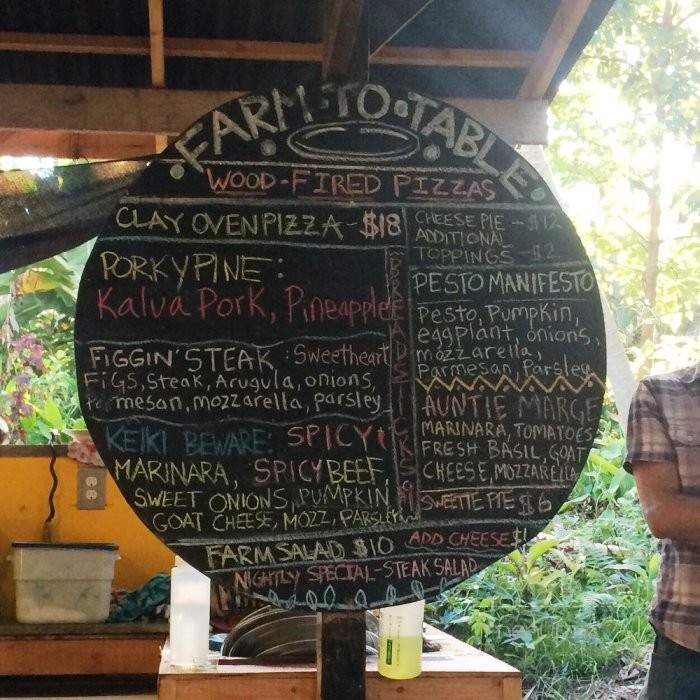 FARM·TO·TABLE
WOOD-FIRED PIZZAS
CLAY OVEN PIZZA - $18
PORKYPINE:
Kalua Pork, Pineapple
FIGGIN' STEAK: Sweetheart
FIGS, Steak, Arugula, onions,
mozzarella, parsley
KEIKI BEWARE: SPICY
MARINARA, SPICY BEEF,
SWEET ONIONS, PUMPKIN
GOAT CHEESE, MOZZ, PARSLEY
BREADSTICKS
CHEESE PIE - $12
ADDITIONAL
TOPPINGS - $2
PESTO MANIFESTO
Pesto, Pumpkin,
eggplant, onions,
mozzarella,
Parmesan, Parsley
AUNTIE MARGE
MARINARA, TOMATOES
FRESH BASIL, GOAT
CHEESE, MOZZARELLA
SWEETIE PIE $6
FARM SALAD $10 ADD CHEESE $1
NIGHTLY SPECIAL - STEAK SALAD